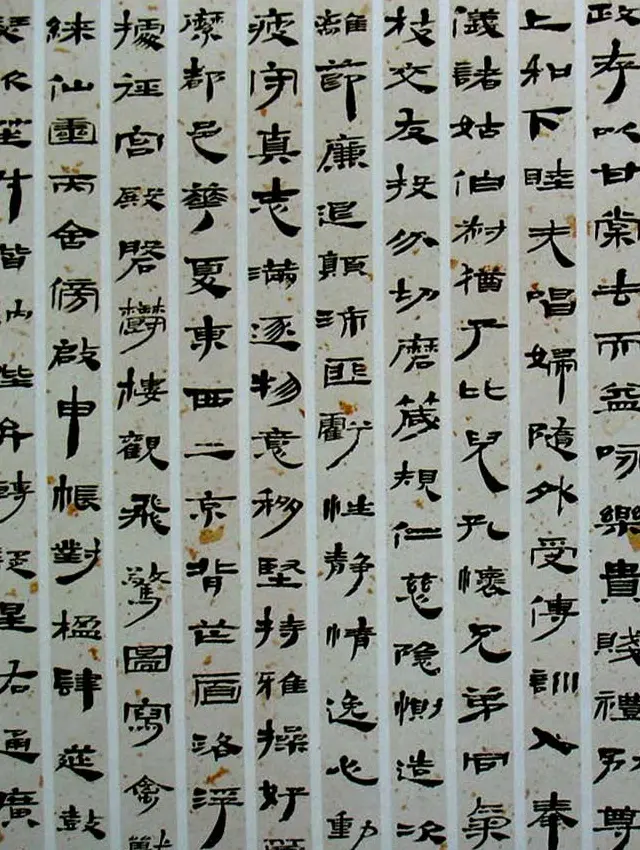 政存以甘棠去而益咏樂貴賤禮別尊
上和下睦夫唱婦隨外受傅訓入奉
儀諸姑伯叔猶子比兒孔懷兄弟同氣
枝交友投分切磨箴規仁慈隱惻造次
離節廉退顛沛匪虧性静情逸心動
疲守真志滿逐物意移堅持雅操好
縻都邑華夏東西二京背芒面洛浮
據涇宮殿盤鬱樓觀飛驚圖寫禽獸
綵仙靈丙舍傍啟申帳對楹肆筵鼓
瑟吹笙升階納陛弁轉疑星右通廣